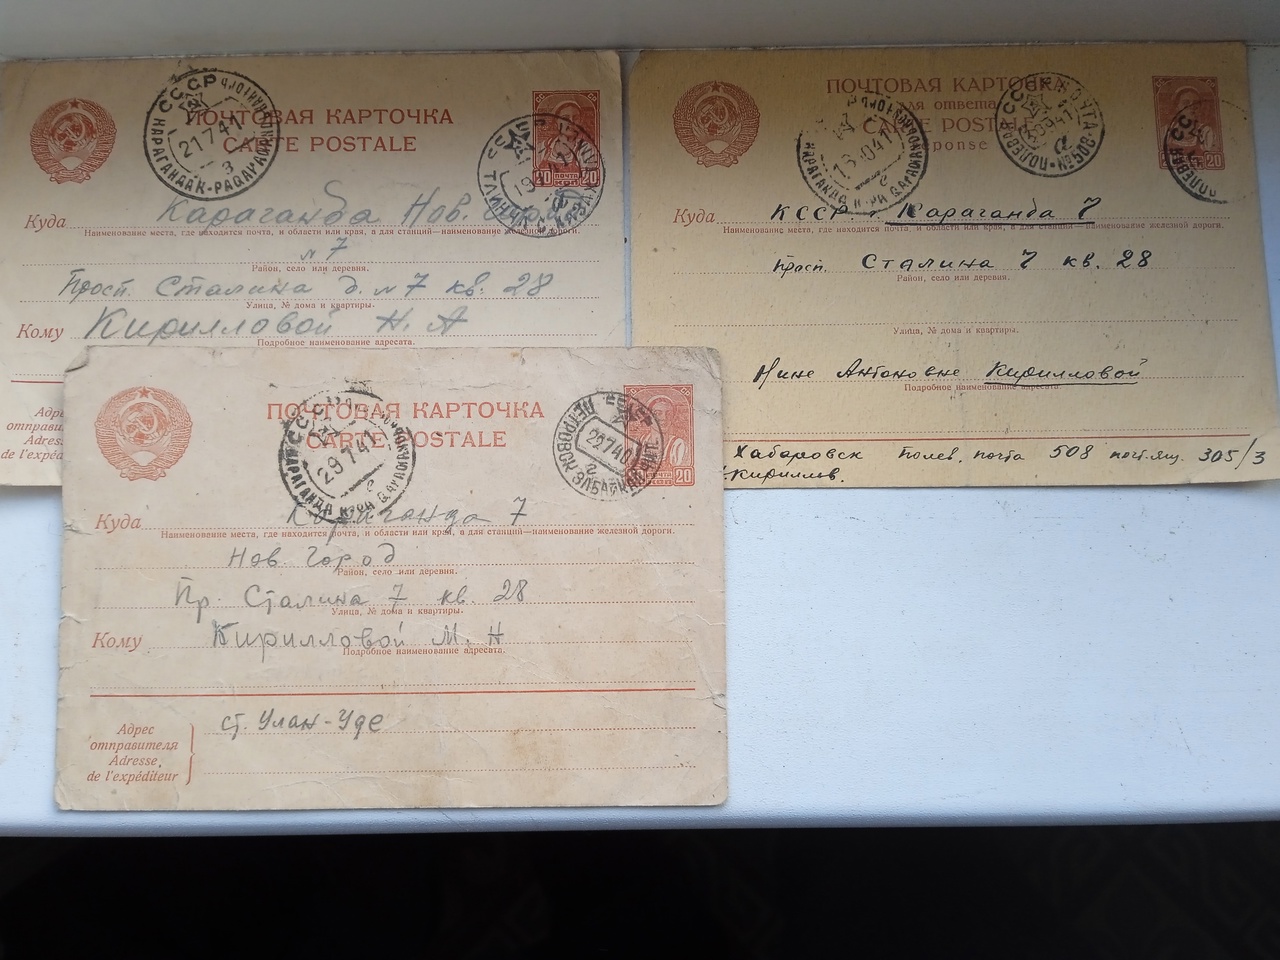 СССР
КАРАГАНДА
21 7 41
ПОЧТОВАЯ КАРТОЧКА
CARTE POSTALE
20 ПОЧТА 20
Куда Караганда Нов.
Наименование места, где находится почта, и области или края, а для станций—наименование железной дороги.
№ 7
Район, село или деревня.
Просп. Сталина д. № 7 кв. 28
Улица, № дома и квартиры.
Кому Кирилловой Н. А
Подробное наименование адресата.
ПОЧТОВАЯ КАРТОЧКА
для ответа
CARTE POSTALE
réponse
КАРАГАНДА
ПОЛЕВАЯ ПОЧТА
20
Куда КССР г. Караганда 7
Наименование места, где находится почта, и области или края, а для станций—наименование железной дороги.
Просп. Сталина 7 кв. 28
Район, село или деревня.
Улица, № дома и квартиры.
Нине Антоновне Кирилловой
Подробное наименование адресата.
Хабаровск Полев. почта 508 почт. ящ. 305/3
Кириллов.
ПОЧТОВАЯ КАРТОЧКА
CARTE POSTALE
СССР
КАРАГАНДА
29 7 41
ПЕТРОВСК-ЗАБАЙКАЛ
20
Куда Караганда 7
Наименование места, где находится почта, и области или края, а для станций—наименование железной дороги.
Нов. Город
Район, село или деревня.
Пр. Сталина 7 кв. 28
Улица, № дома и квартиры.
Кому Кирилловой М. Н
Подробное наименование адресата.
Адрес
отправителя
Adresse,
de l'expéditeur
ст. Улан-Уде